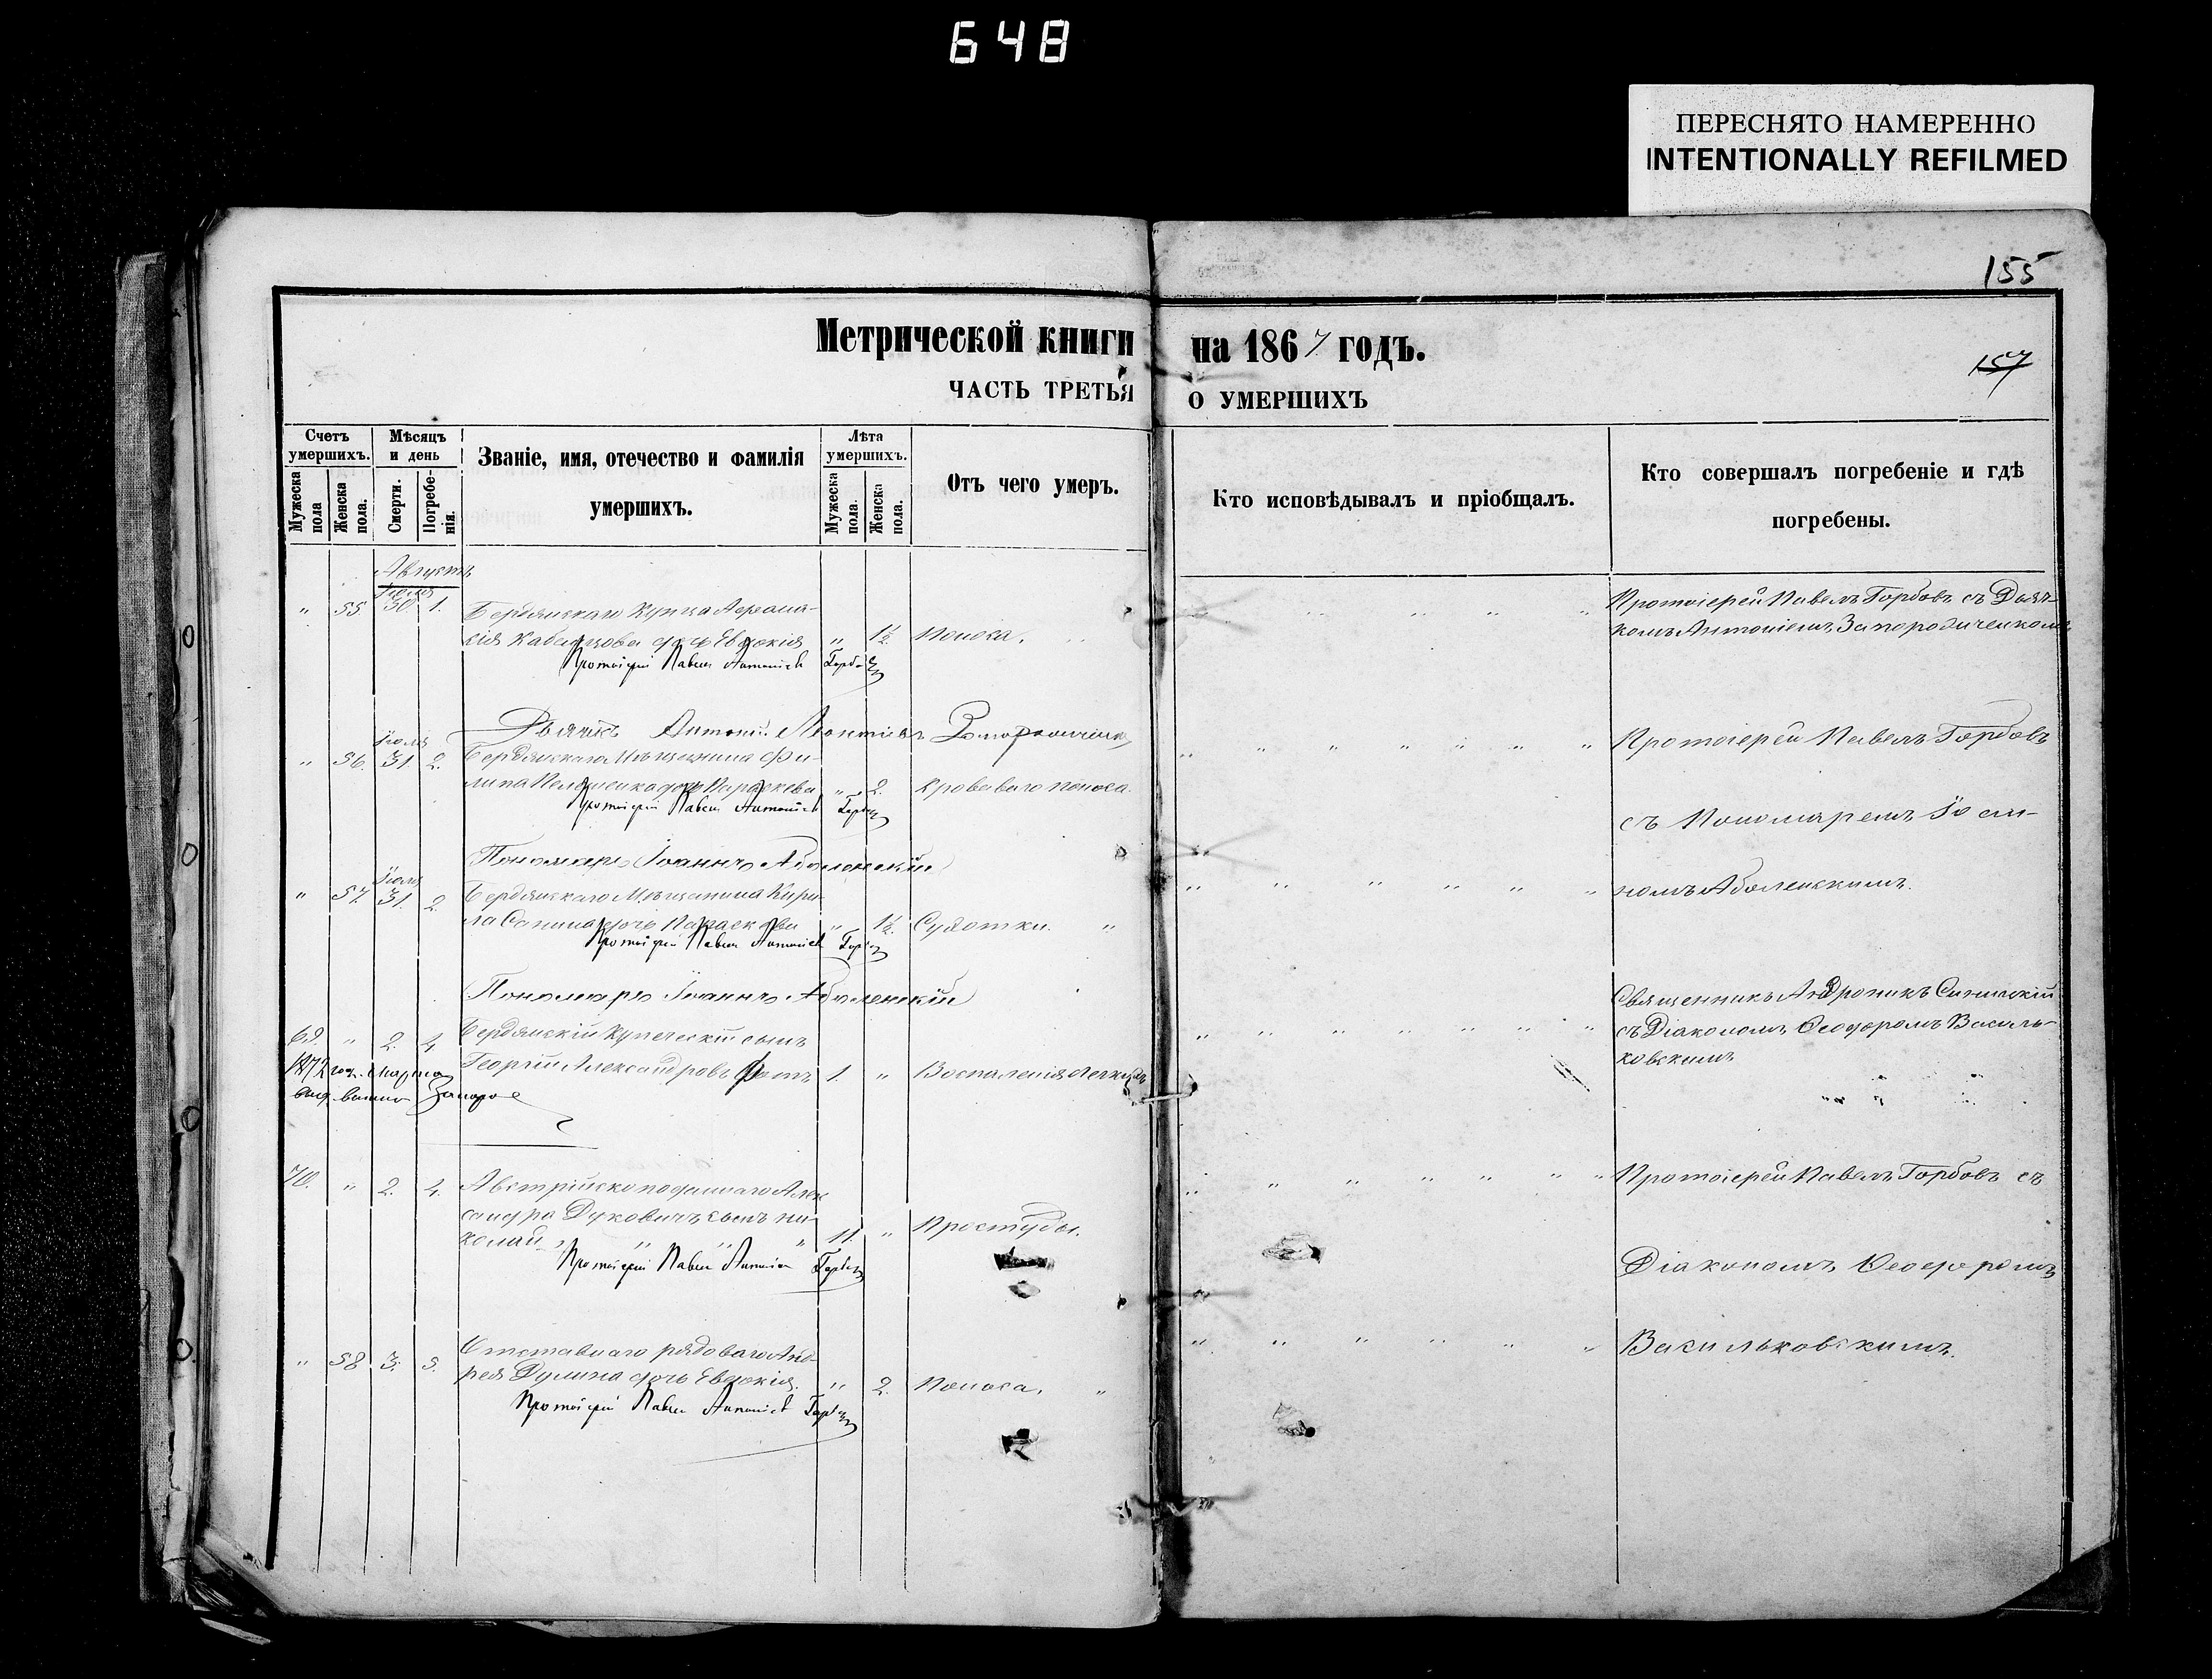 648
ПЕРЕСНЯТО НАМЕРЕННО
INTENTIONALLY REFILMED
155
Метрической книги на 1867 годъ.
157
ЧАСТЬ ТРЕТЬЯ О УМЕРШИХЪ
Счетъ умершихъ.
Мужеска пола
Женска пола.
Мѣсяцъ и день
Смерти.
Погребенія.
Званіе, имя, отечество и фамилія
умершихъ.
Лѣта умершихъ.
Мужеска пола.
Женска пола.
Отъ чего умеръ.
Кто исповѣдывалъ и пріобщалъ.
Кто совершалъ погребеніе и гдѣ
погребены.
Августъ
Іюля
" 55 30. 1. Бердянскаго Купца
дочь Евдокія " 1½ Поноса.
Протоіерей Павелъ Антоніевъ Горбовъ
Протоіерей Павелъ Горбовъ съ Дьяч-
комъ Антоніемъ
Дьячекъ Антоній Леонтіевъ
Іюля
" 56. 31. 2. Бердянскаго Мѣщанина Фи-
липа дочь Параскева " 2. Кроваваго поноса.
Протоіерей Павелъ Антоніевъ Горбовъ
Протоіерей Павелъ Горбовъ
съ Пономаремъ Іоан-
номъ Аболенскимъ.
Пономарь Іоаннъ Аболенскій
Іюля
" 57. 31. 2. Бердянскаго Мѣщанина Кири-
ла дочь Параскева " 1½. Сухотки. "
Протоіерей Павелъ Антоніевъ Горбовъ
Пономарь Іоаннъ Аболенскій
69. " 2. 4. Бердянскій Купеческій сынъ
Георгій Александровъ 1. " Воспаленія легкихъ
1872 год. марта
Священникъ Андроникъ Синицкій
съ Діакономъ Ѳеодоромъ Василь-
ковскимъ
70. " 2. 4. Австрійско подданнаго Алек
сандра Дуковичъ сынъ Ни-
колай " " " 11. " Простуды.
Протоіерей Павелъ Антоніевъ Горбовъ
Протоіерей Павелъ Горбовъ съ
Діакономъ Ѳеодоромъ
Васильковскимъ.
" 58 3. 5. Отставнаго рядоваго Анд-
рея Дулина дочь Евдокія. " 2. Поноса. "
Протоіерей Павелъ Антоніевъ Горбовъ